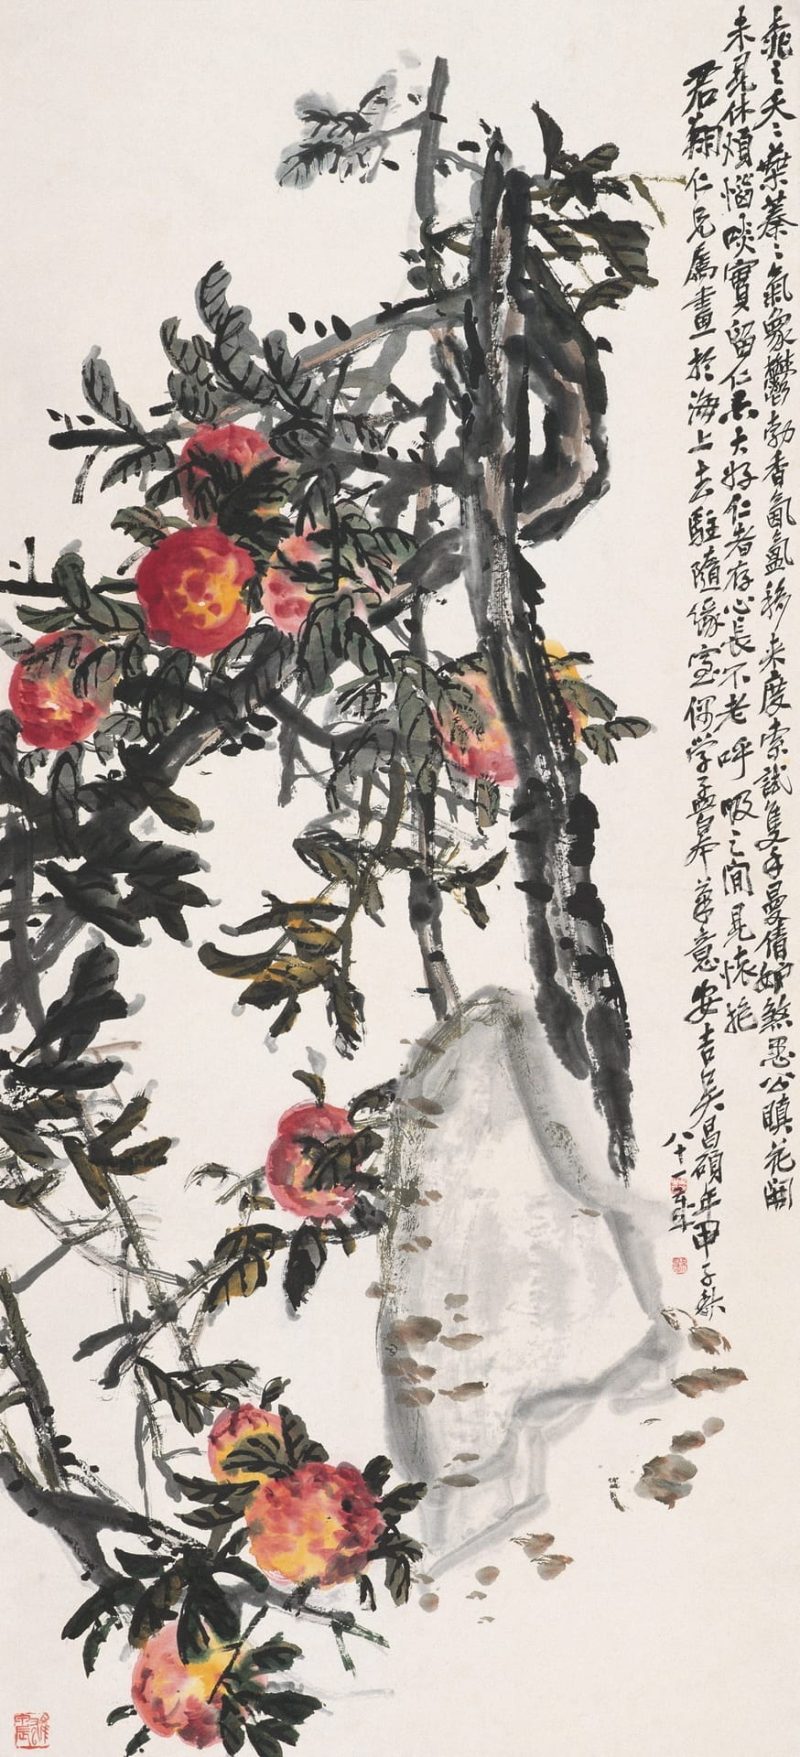 桃之夭夭葉蓁蓁氣象鬱勃香氤氳移來度索試隻手曼倩妒煞愚公瞋花開
未見休煩惱啖實留仁大好仁者存心長不老呼吸之間見懷抱
君翔仁兄屬畫於海上去駐隨緣室偶學孟皋筆意安吉吳昌碩年甲子秋
八十一